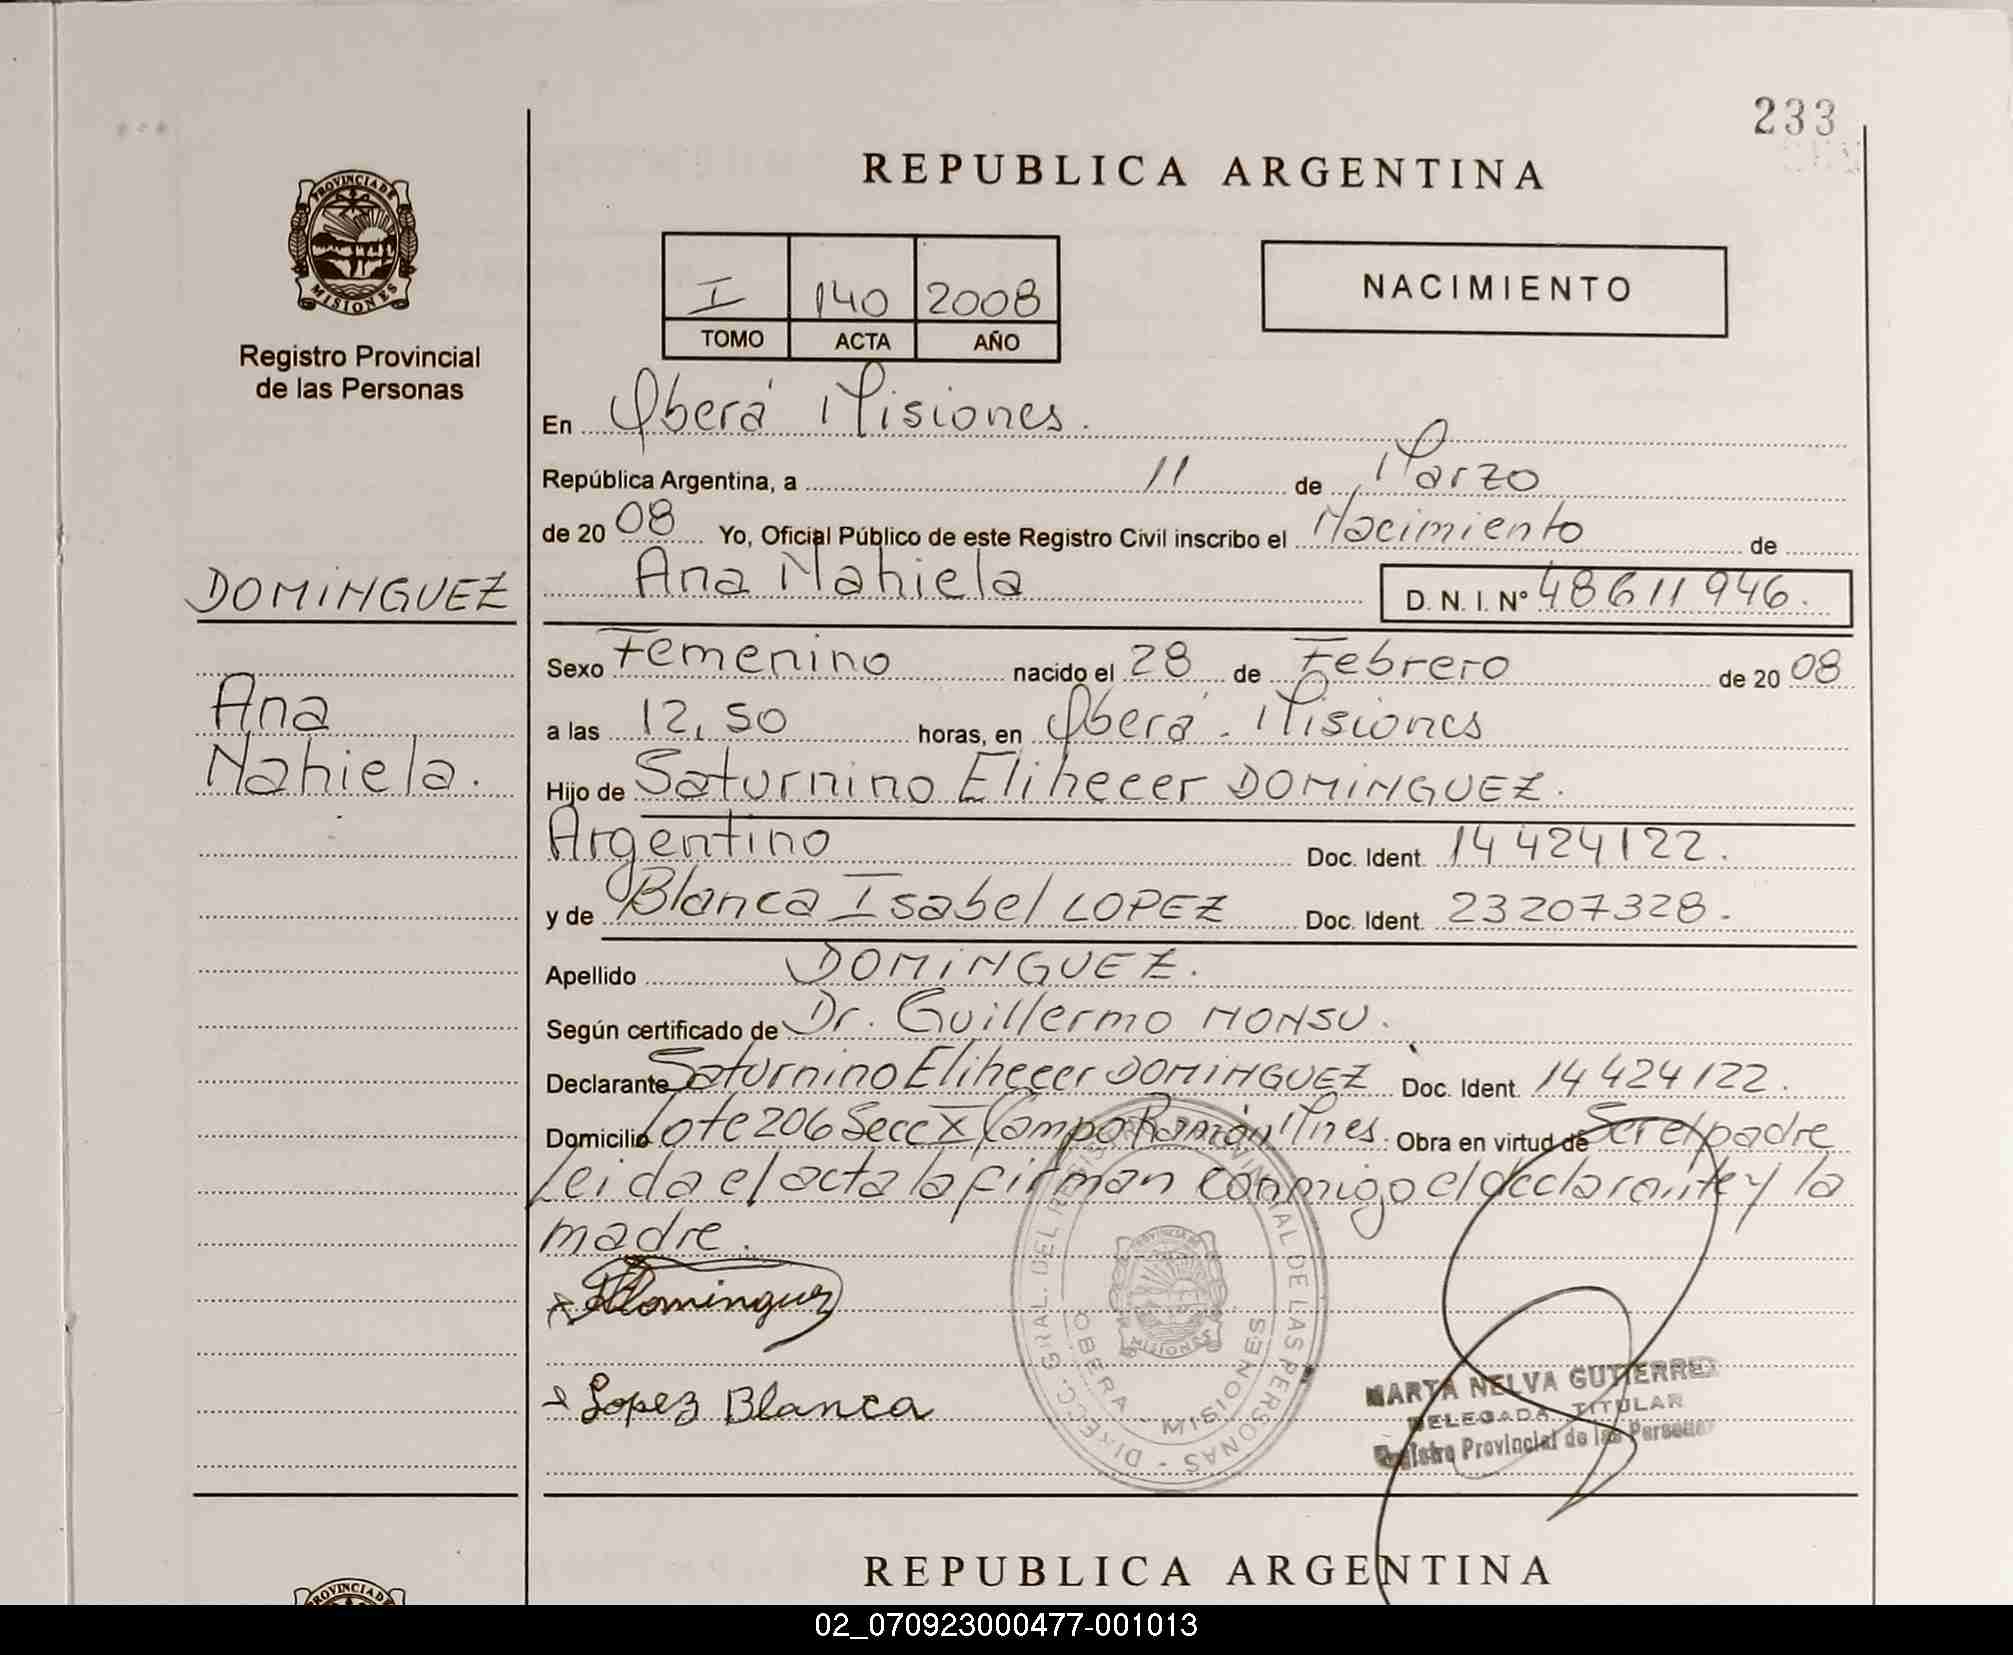 233
REPUBLICA ARGENTINA
PROVINCIA DE
MISIONES
Registro Provincial
de las Personas
I 140 2008
TOMO ACTA AÑO
NACIMIENTO
En Oberá Misiones.
República Argentina, a 11 de Marzo
de 20 08 Yo, Oficial Público de este Registro Civil inscribo el Nacimiento de
Ana Nahiela D. N. I. N° 48611946.
DOMINGUEZ
Ana
Nahiela.
Sexo Femenino nacido el 28 de Febrero de 20 08
a las 12,50 horas, en Oberá - Misiones
Hijo de Saturnino Elihecer DOMINGUEZ.
Argentino Doc. Ident. 14424122.
y de Blanca Isabel LOPEZ Doc. Ident. 23207328.
Apellido DOMINGUEZ.
Según certificado de Dr. Guillermo MONSU.
Declarante Saturnino Elihecer DOMINGUEZ Doc. Ident. 14424122.
Domicilio Lote 206 Secc X Campo Ramón Mnes. Obra en virtud de Ser el padre
Leida el acta la firman conmigo el declarante y la
madre.
Dominguez
Lopez Blanca
DIRECC. GRAL. DEL REGISTRO PROVINCIAL DE LAS PERSONAS -
OBERA - MISIONES
PROVINCIA DE
MISIONES
MARTA NELVA GUTIERREZ
DELEGADA TITULAR
Registro Provincial de las Personas
REPUBLICA ARGENTINA
PROVINCIA DE
02_070923000477-001013